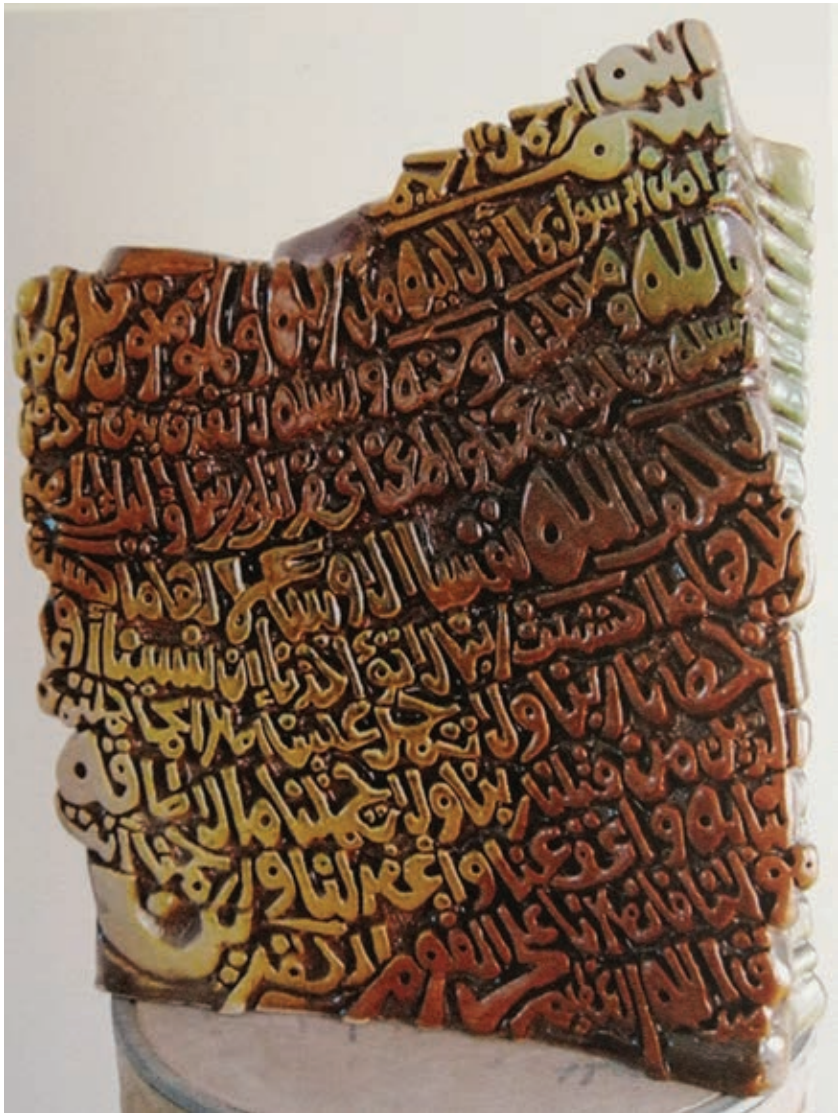 بسم الله الرحمن الرحيم
امن الرسول بما أنزل إليه من ربه والمؤمنون كل أمن
بالله وملائكته وكتبه ورسله لا نفرق بين أحد من
رسله وقالوا سمعنا وأطعنا غفرانك ربنا وإليك المصير
لا يكلف الله نفسا إلا وسعها لها ما كسبت
وعليها ما اكتسبت ربنا لا تؤاخذنا إن نسينا أو
أخطأنا ربنا ولا تحمل علينا إصرا كما حملته
الذين من قبلنا ربنا ولا تحملنا ما لا طاقة
لنا به واعف عنا واغفر لنا وارحمنا أنت
مولانا فانصرنا على القوم الكفرين
صدق الله العظيم